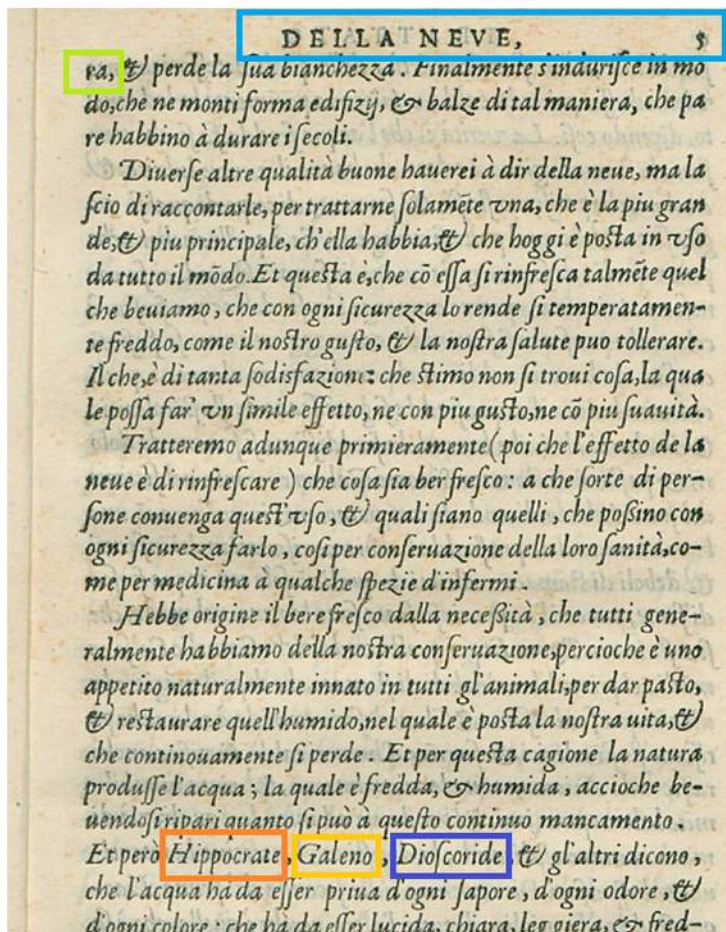 DELLA NEVE, 5
ra, & perde la ſua bianchezza. Finalmente s'induriſce in mo
do, che ne monti forma edifizÿ, & balze di tal maniera, che pa
re habbino à durare i ſecoli.
Diuerſe altre qualità buone hauerei à dir della neue, ma la
ſcio di raccontarle, per trattarne ſolamēte vna, che è la piu gran
de, & piu principale, ch'ella habbia, & che hoggi è poſta in vſo
da tutto il mōdo. Et queſta è, che cō eſſa ſi rinfreſca talmēte quel
che beuiamo, che con ogni ſicurezza lo rende ſi temperatamen-
te freddo, come il noſtro guſto, & la noſtra ſalute puo tollerare.
Il che, è di tanta ſodisfazione: che ſtimo non ſi troui coſa, la qua
le poſſa far' vn ſimile effetto, ne con piu guſto, ne cō piu ſuauità.
Tratteremo adunque primieramente (poi che l'effetto de la
neue è di rinfreſcare) che coſa ſia ber freſco: a che ſorte di per-
ſone conuenga queſt'vſo, & quali ſiano quelli, che poſſino con
ogni ſicurezza farlo, coſi per conſeruazione della loro ſanità, co-
me per medicina à qualche ſpezie d'infermi.
Hebbe origine il bere freſco dalla neceſſità, che tutti gene-
ralmente habbiamo della noſtra conſeruazione, percioche è uno
appetito naturalmente innato in tutti gl'animali, per dar paſto,
& reſtaurare quell'humido, nel quale è poſta la noſtra uita, &
che continouamente ſi perde. Et per queſta cagione la natura
produſſe l'acqua; la quale è fredda, & humida, accioche be-
uendoſi ripari quanto ſi può à queſto continuo mancamento.
Et però Hippocrate, Galeno, Dioſcoride, & gl'altri dicono,
che l'acqua há da eſſer priua d'ogni ſapore, d'ogni odore, &
d'ogni colore: che há da eſſer lucida, chiara, leggiera, & fred-